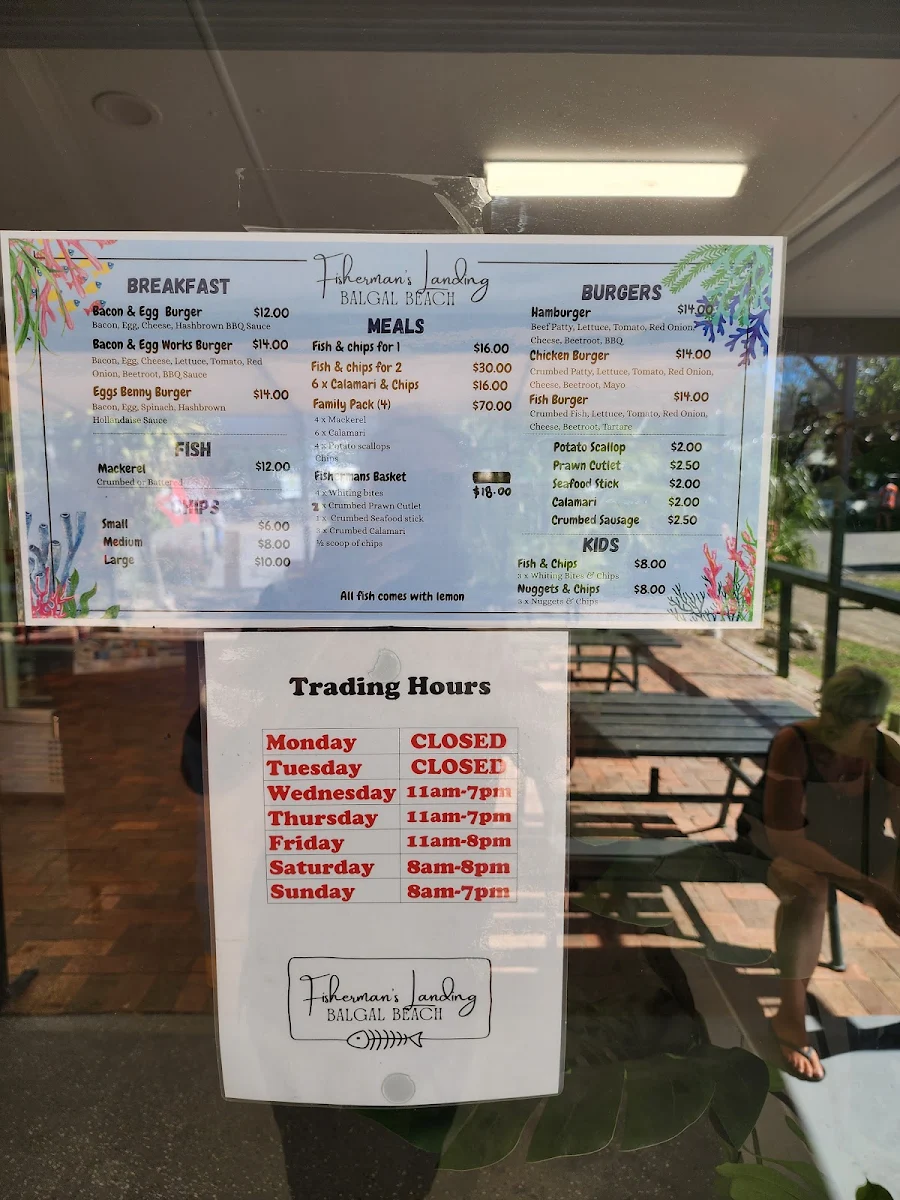 Fisherman's Landing
BALGAL BEACH
BREAKFAST
Bacon & Egg Burger $12.00
Bacon, Egg, Cheese, Hashbrown BBQ Sauce
Bacon & Egg Works Burger $14.00
Bacon, Egg, Cheese, Lettuce, Tomato, Red
Onion, Beetroot, BBQ Sauce
Eggs Benny Burger $14.00
Bacon, Egg, Spinach, Hashbrown
Hollandaise Sauce
FISH
Mackerel $12.00
Crumbed or Battered
CHIPS
Small $6.00
Medium $8.00
Large $10.00
MEALS
Fish & chips for 1 $16.00
Fish & chips for 2 $30.00
6 x Calamari & Chips $16.00
Family Pack (4) $70.00
4 x Mackerel
6 x Calamari
4 x Potato scallops
Chips
Fishermans Basket $18.00
4 x Whiting bites
2 x Crumbed Prawn Cutlet
1 x Crumbed Seafood stick
x Crumbed Calamari
½ scoop of chips
All fish comes with lemon
BURGERS
Hamburger $14.00
Beef Patty, Lettuce, Tomato, Red Onion,
Cheese, Beetroot, BBQ
Chicken Burger $14.00
Crumbed Patty, Lettuce, Tomato, Red Onion,
Cheese, Beetroot, Mayo
Fish Burger $14.00
Crumbed Fish, Lettuce, Tomato, Red Onion,
Cheese, Beetroot, Tartare
Potato Scallop $2.00
Prawn Cutlet $2.50
Seafood Stick $2.00
Calamari $2.00
Crumbed Sausage $2.50
KIDS
Fish & Chips $8.00
3 x Whiting Bites & Chips
Nuggets & Chips $8.00
3 x Nuggets & Chips
Trading Hours
Monday CLOSED
Tuesday CLOSED
Wednesday 11am-7pm
Thursday 11am-7pm
Friday 11am-8pm
Saturday 8am-8pm
Sunday 8am-7pm
Fisherman's Landing
BALGAL BEACH